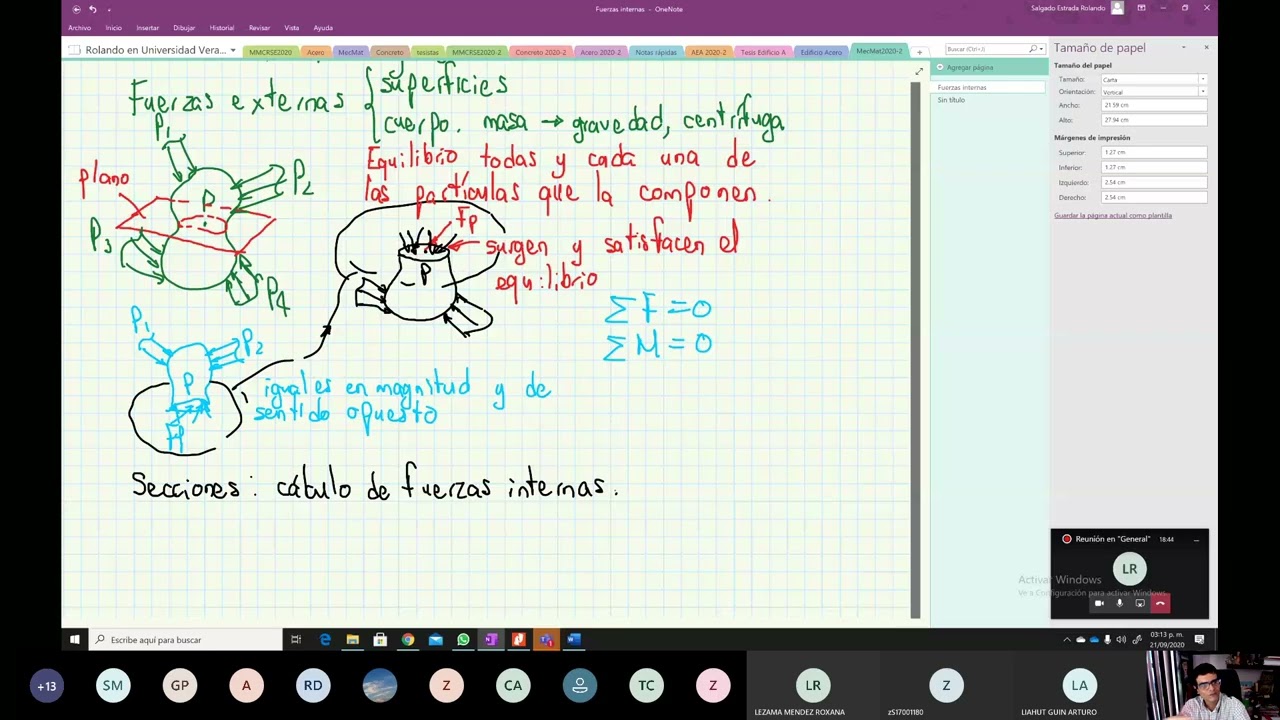 Fuerzas internas - OneNote
Salgado Estrada Rolando
Archivo Inicio Insertar Dibujar Historial Revisar Vista Ayuda
Rolando en Universidad Vera...
MMCRSE2020 Acero MecMat Concreto tesistas MMCRSE2020-2 Concreto 2020-2 Acero 2020-2 Notas rápidas AEA 2020-2 Tesis Edificio A Edificio Acero MecMat2020-2
Buscar (Ctrl+)
Agregar página
Fuerzas internas
Sin título
Tamaño de papel
Tamaño del papel
Tamaño: Carta
Orientación: Vertical
Ancho: 21.59 cm
Alto: 27.94 cm
Márgenes de impresión
Superior: 1.27 cm
Inferior: 1.27 cm
Izquierdo: 2.54 cm
Derecho: 2.54 cm
Guardar la página actual como plantilla
superficies
Fuerzas externas
cuerpo. masa → gravedad, centrífuga
Equilibrio todas y cada una de
las partículas que la componen.
P1
P2
plano
P
P3
P4
Fp
surgen y satisfacen el
equilibrio
P
Σ F = 0
Σ M = 0
P1
P2
P
Fp
iguales en magnitud y de
sentido opuesto
Secciones: cálculo de fuerzas internas.
Reunión en "General" 18:44
LR
Activar Windows
Ve a Configuración para activar Windows.
Escribe aquí para buscar
03:13 p. m.
21/09/2020
+13 SM GP A RD Z CA TC Z LR Z LA
LEZAMA MENDEZ ROXANA
zS17001180
LIAHUT GUIN ARTURO